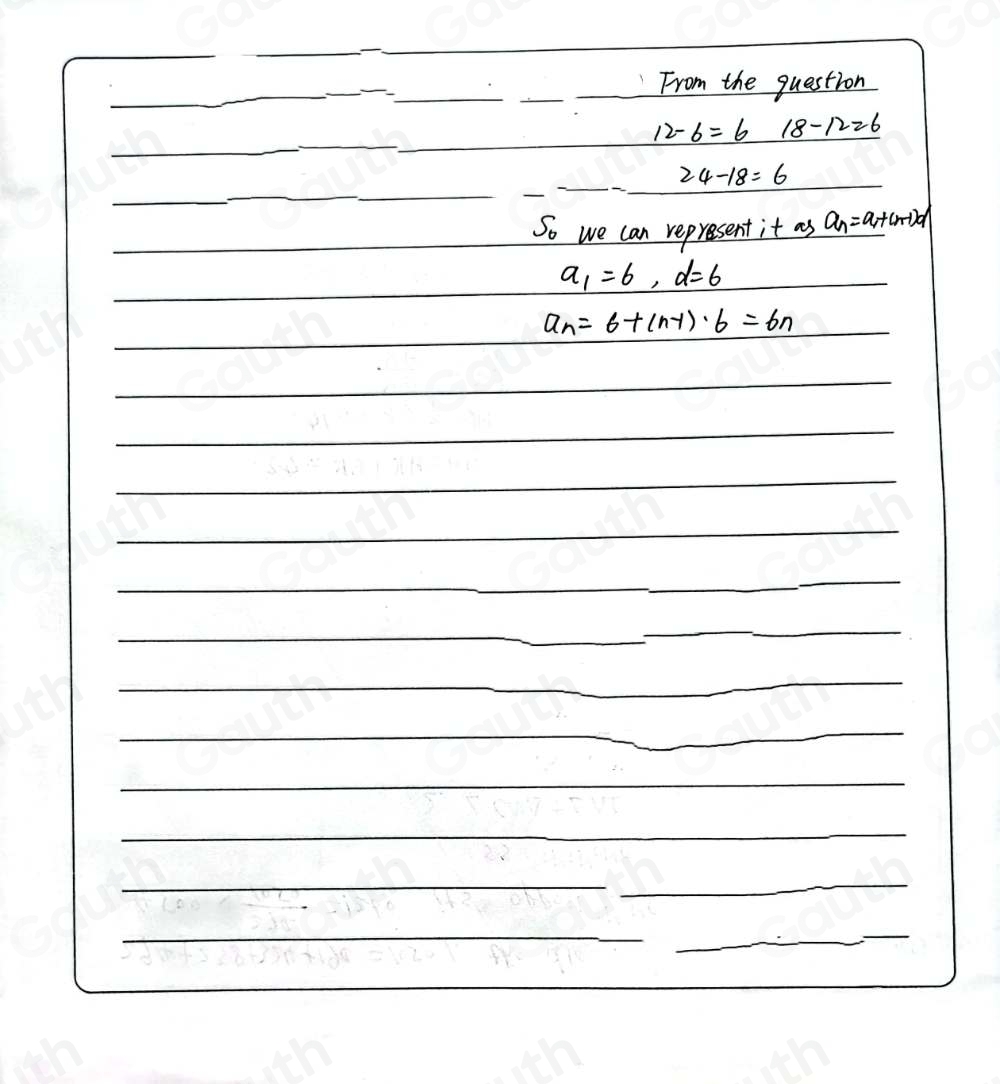 From the question
12-6=6 18-12=6
24-18=6
So we can represent it as an=a1+(n-1)d
a1=6, d=6
an=6+(n-1)·6=6n